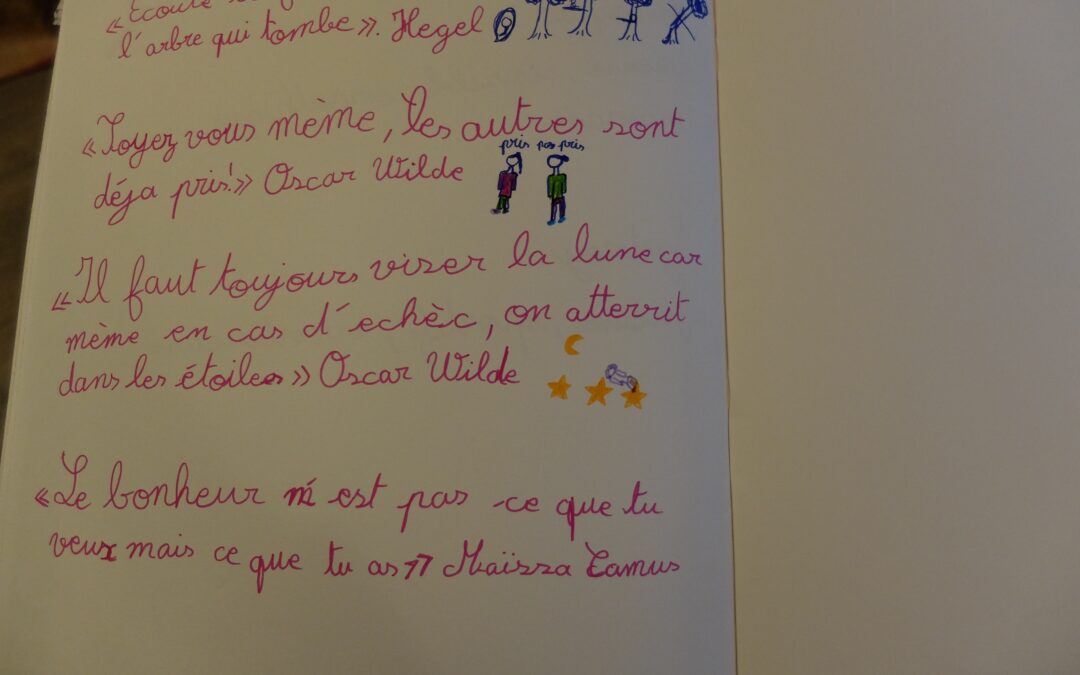 « Ecoute
l'arbre qui tombe ». Hegel
« Soyez vous mème, les autres sont
pris pas pris
déja pris!» Oscar Wilde
« Il faut toujours viser la lune car
mème en cas d'echèc, on atterrit
dans les étoiles » Oscar Wilde
« Le bonheur n'est pas ce que tu
veux mais ce que tu as » Maïssa Camus